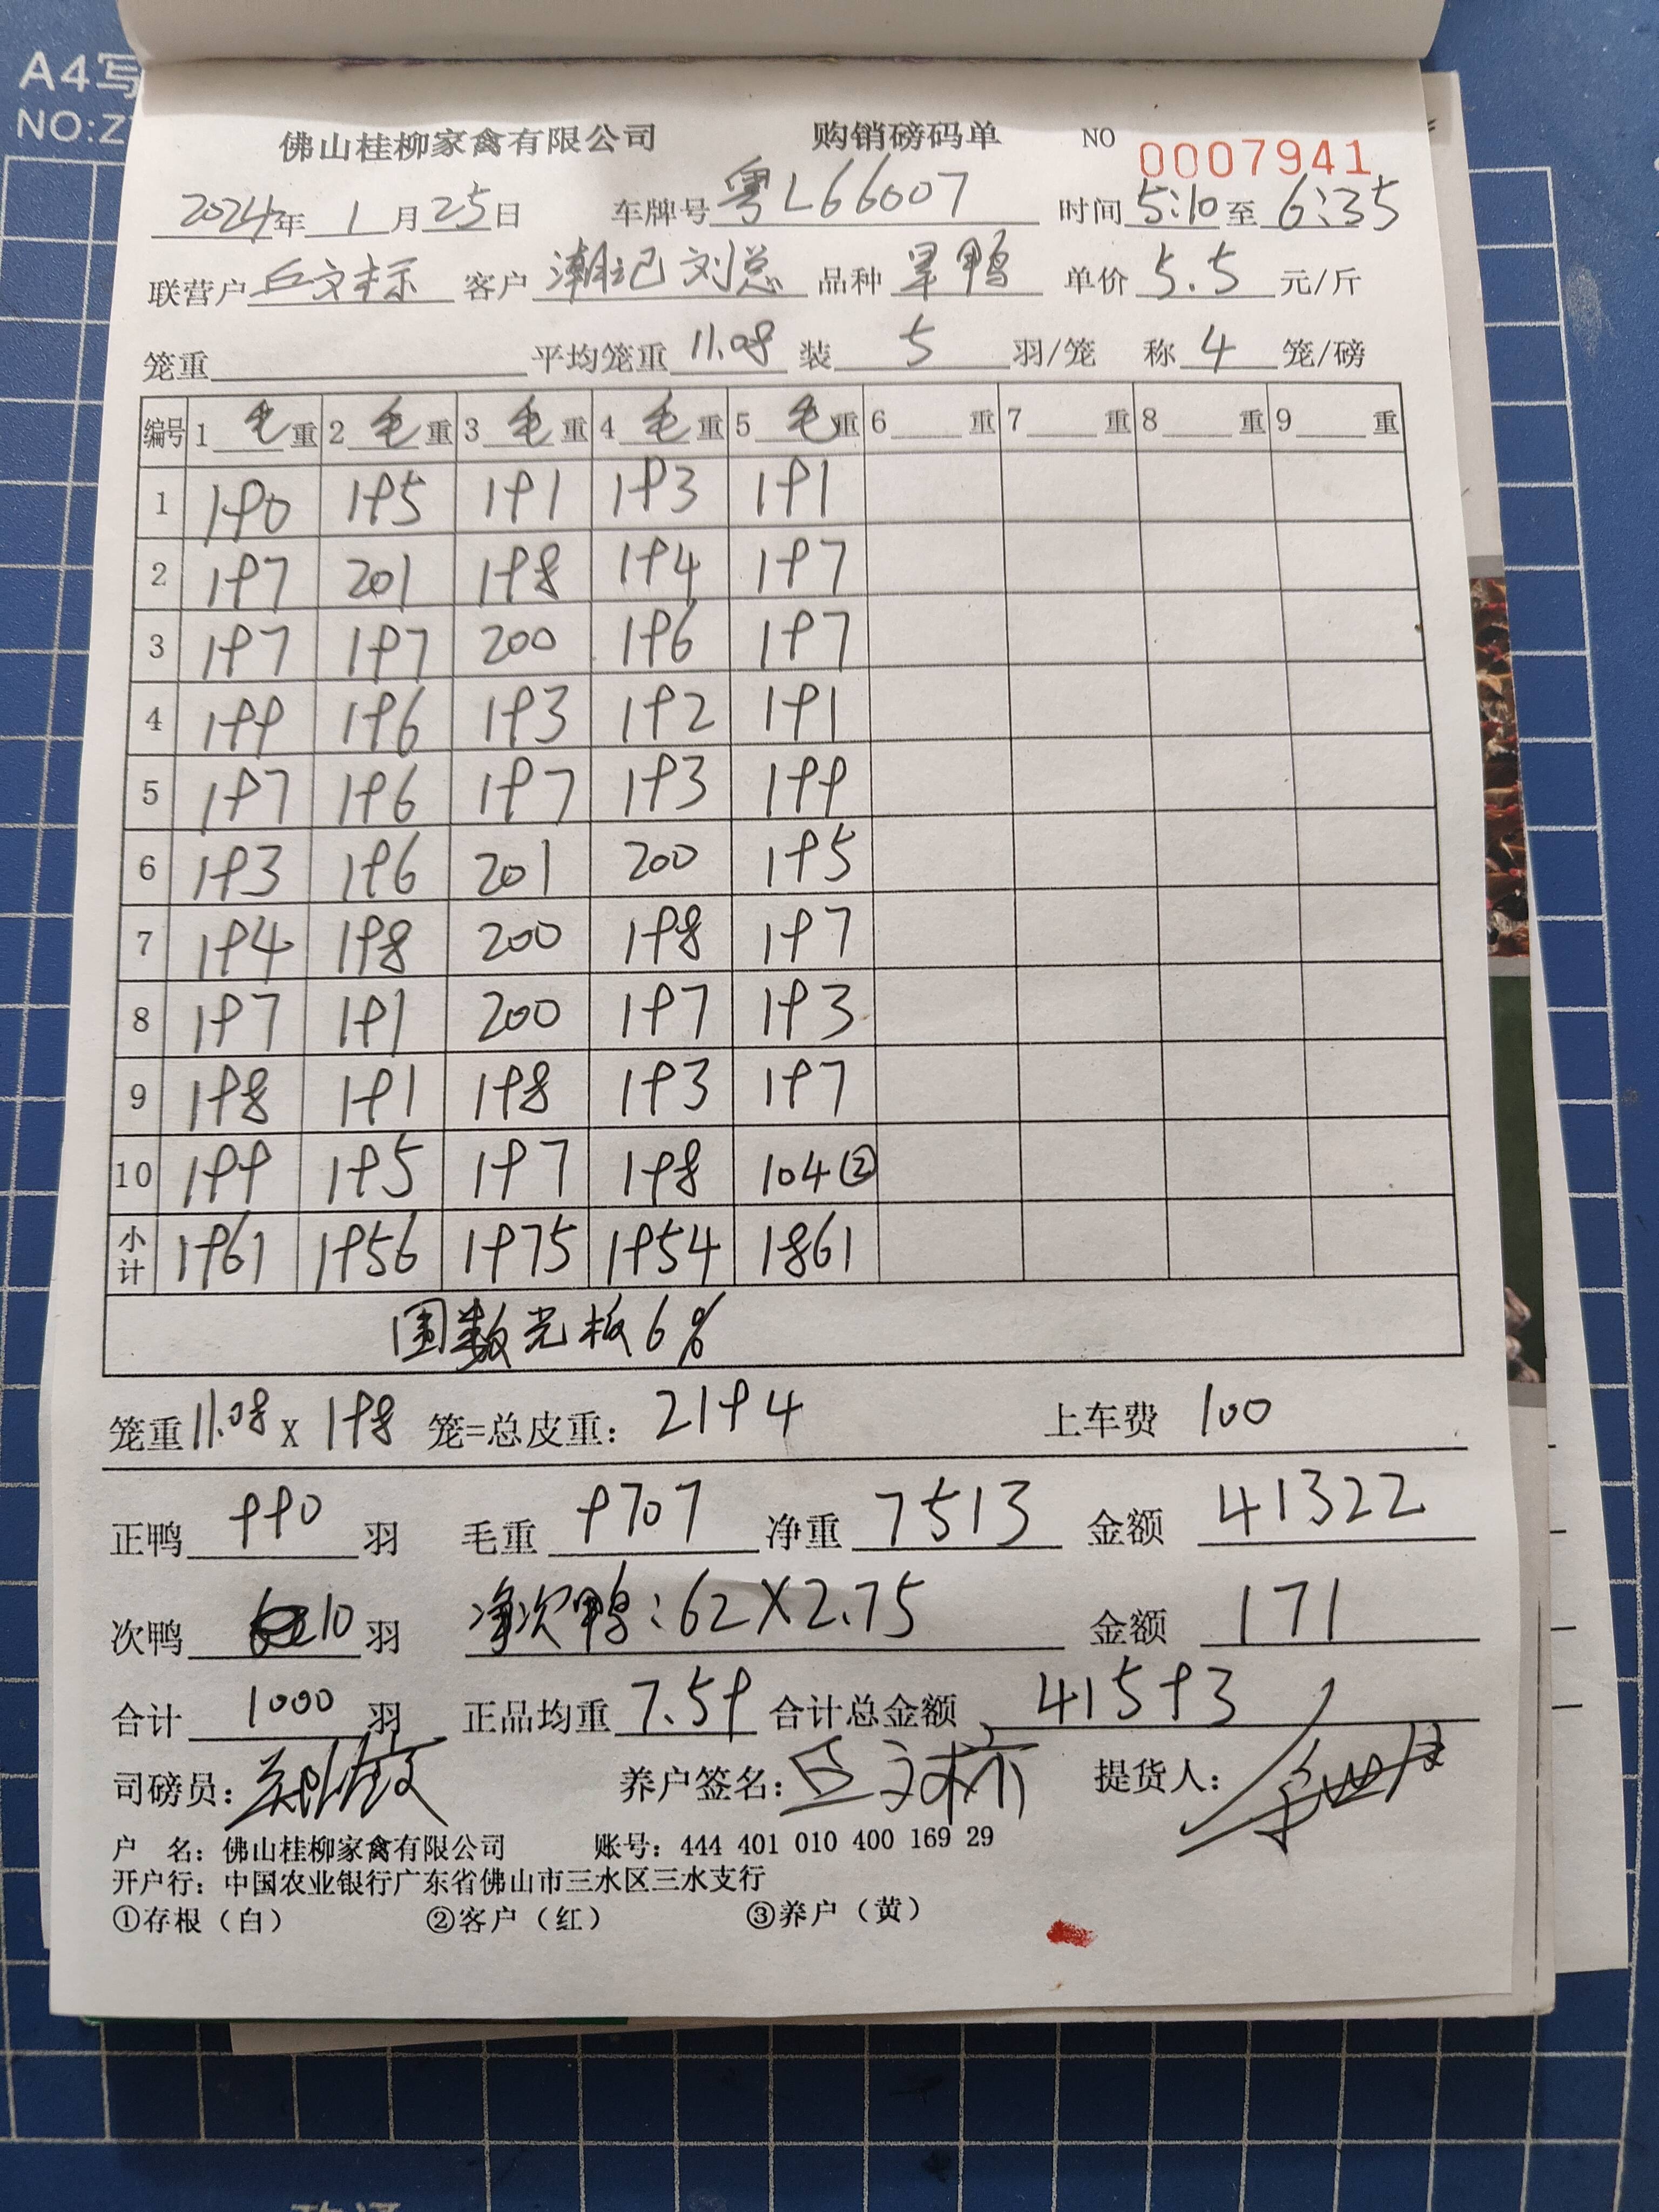 A4写
NO:Z
佛山桂柳家禽有限公司 购销磅码单 NO 0007941
2024年 1 月 25 日 车牌号 粤L66007 时间 5:10 至 6:35
联营户 丘文标 客户 潮记刘总 品种 旱鸭 单价 5.5 元/斤
笼重 平均笼重 11.08 装 5 羽/笼 称 4 笼/磅
编号 1 毛重 2 毛重 3 毛重 4 毛重 5 毛重 6 重 7 重 8 重 9 重
1 190 195 191 193 191
2 197 201 198 194 197
3 197 197 200 196 197
4 199 196 193 192 191
5 197 196 197 193 199
6 193 196 201 200 195
7 194 198 200 198 197
8 197 191 200 197 193
9 198 191 198 193 197
10 199 195 197 198 104②
小计 1961 1956 1975 1954 1861
围数光板6%
笼重 11.08 X 198 笼=总皮重: 2194 上车费 100
正鸭 990 羽 毛重 9707 净重 7513 金额 41322
次鸭 10 羽 净次鸭:62X2.75 金额 171
合计 1000 羽 正品均重 7.59 合计总金额 41593
司磅员: 养户签名: 丘文标 提货人:
户 名: 佛山桂柳家禽有限公司 账号: 444 401 010 400 169 29
开户行: 中国农业银行广东省佛山市三水区三水支行
①存根（白） ②客户（红） ③养户（黄）